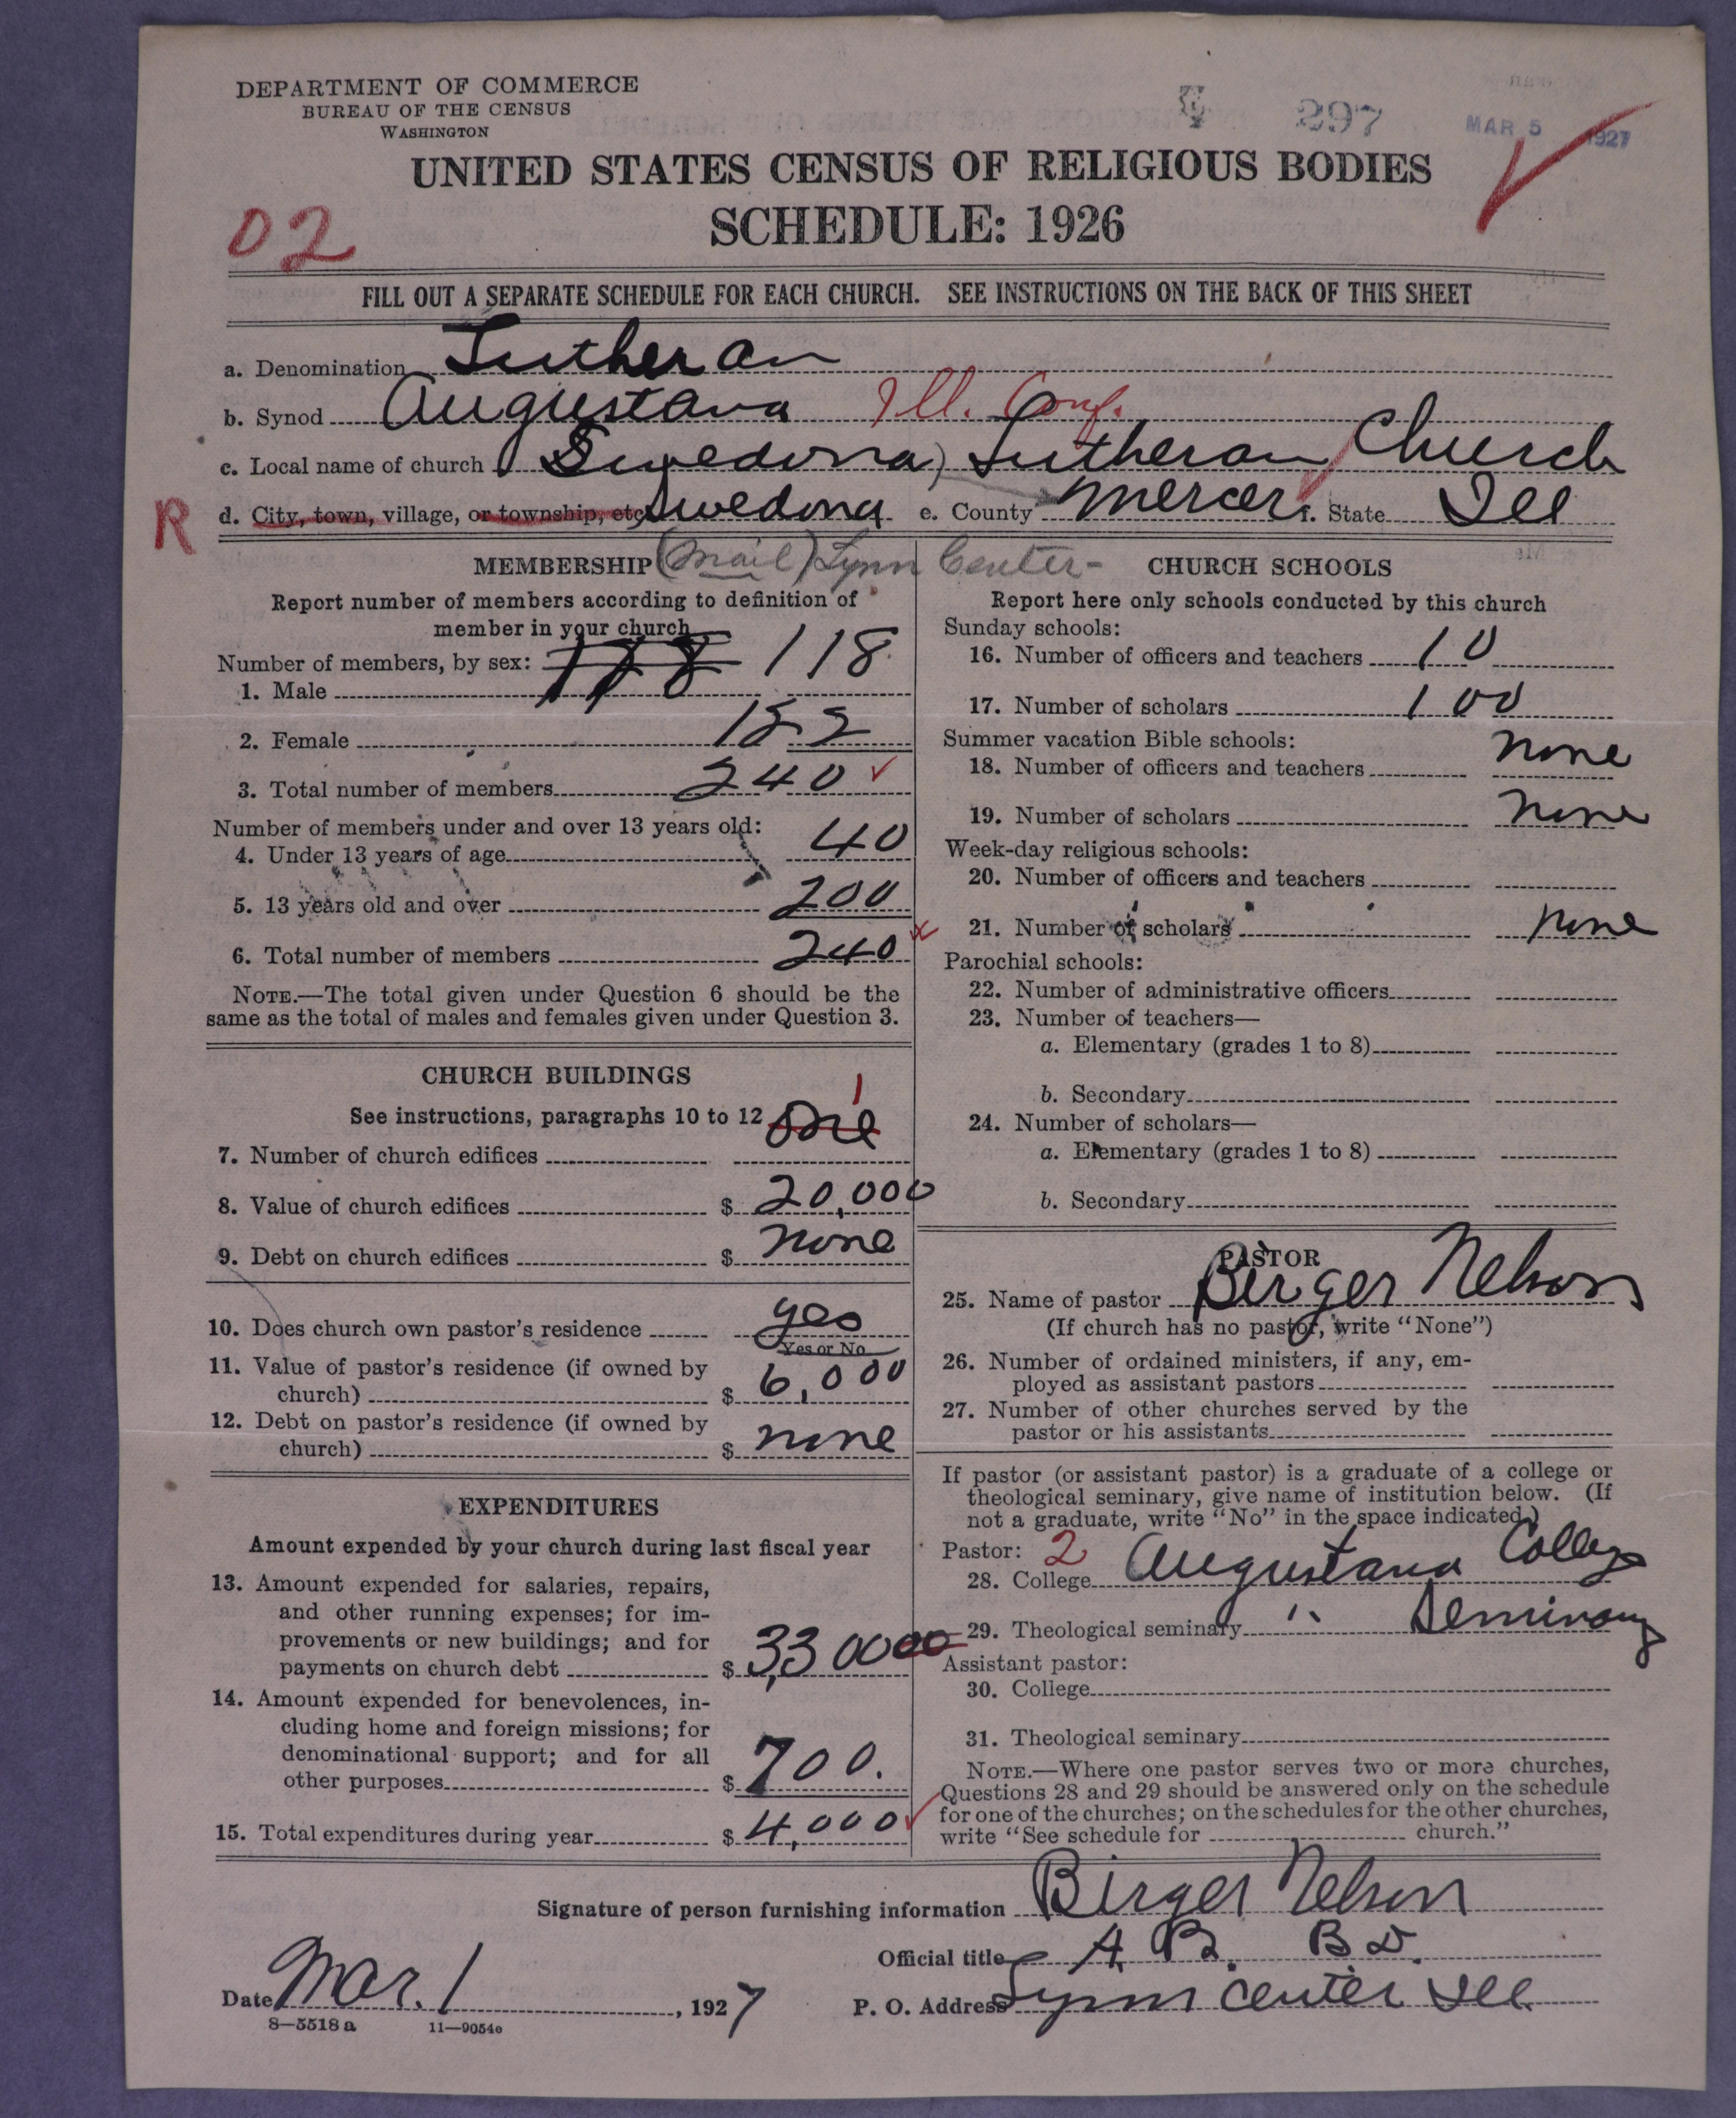 DEPARTMENT OF COMMERCE
BUREAU OF THE CENSUS
WASHINGTON
297
MAR 5 1927
UNITED STATES CENSUS OF RELIGIOUS BODIES
SCHEDULE: 1926
02
FILL OUT A SEPARATE SCHEDULE FOR EACH CHURCH. SEE INSTRUCTIONS ON THE BACK OF THIS SHEET
a. Denomination Lutheran
b. Synod Augustana Ill. Conf.
c. Local name of church (Swedona) Lutheran Church
R d. City, town, village, or township, etc. Swedona e. County Mercer f. State Ill
MEMBERSHIP (mail) Lynn Center-
Report number of members according to definition of
member in your church
Number of members, by sex: 118 118
1. Male
2. Female 122
3. Total number of members 240
Number of members under and over 13 years old:
4. Under 13 years of age 40
5. 13 years old and over 200
6. Total number of members 240
NOTE.—The total given under Question 6 should be the
same as the total of males and females given under Question 3.
CHURCH BUILDINGS
See instructions, paragraphs 10 to 12 One 1
7. Number of church edifices
8. Value of church edifices $ 20,000
9. Debt on church edifices $ none
10. Does church own pastor's residence yes
Yes or No
11. Value of pastor's residence (if owned by
church) $ 6,000
12. Debt on pastor's residence (if owned by
church) $ none
EXPENDITURES
Amount expended by your church during last fiscal year
13. Amount expended for salaries, repairs,
and other running expenses; for im-
provements or new buildings; and for
payments on church debt $ 3,300 00
14. Amount expended for benevolences, in-
cluding home and foreign missions; for
denominational support; and for all
other purposes $ 700.
15. Total expenditures during year $ 4,000
CHURCH SCHOOLS
Report here only schools conducted by this church
Sunday schools:
16. Number of officers and teachers 10
17. Number of scholars 100
Summer vacation Bible schools:
18. Number of officers and teachers none
19. Number of scholars none
Week-day religious schools:
20. Number of officers and teachers
21. Number of scholars none
Parochial schools:
22. Number of administrative officers
23. Number of teachers—
a. Elementary (grades 1 to 8)
b. Secondary
24. Number of scholars—
a. Elementary (grades 1 to 8)
b. Secondary
PASTOR
25. Name of pastor Birger Nelson
(If church has no pastor, write "None")
26. Number of ordained ministers, if any, em-
ployed as assistant pastors
27. Number of other churches served by the
pastor or his assistants
If pastor (or assistant pastor) is a graduate of a college or
theological seminary, give name of institution below. (If
not a graduate, write "No" in the space indicated.)
Pastor: 2
28. College Augustana College
29. Theological seminary " Seminary
Assistant pastor:
30. College
31. Theological seminary
NOTE.—Where one pastor serves two or more churches,
Questions 28 and 29 should be answered only on the schedule
for one of the churches; on the schedules for the other churches,
write "See schedule for church."
Signature of person furnishing information Birger Nelson
Official title A. B. B D.
Date Mar. 1, 1927 P. O. Address Lynn Center Ill
8—5518a 11—9054e